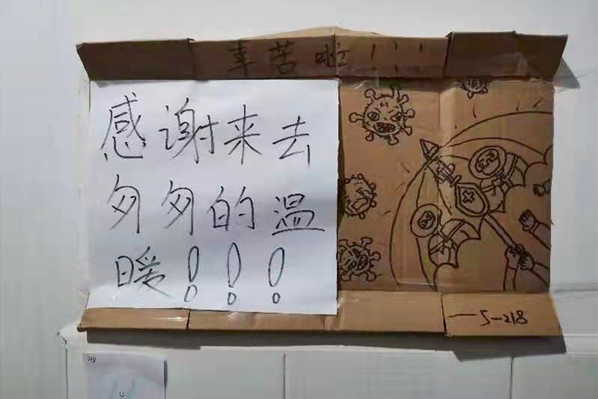 辛苦啦!!!
感谢来去
匆匆的温
暖!!!
—5-218